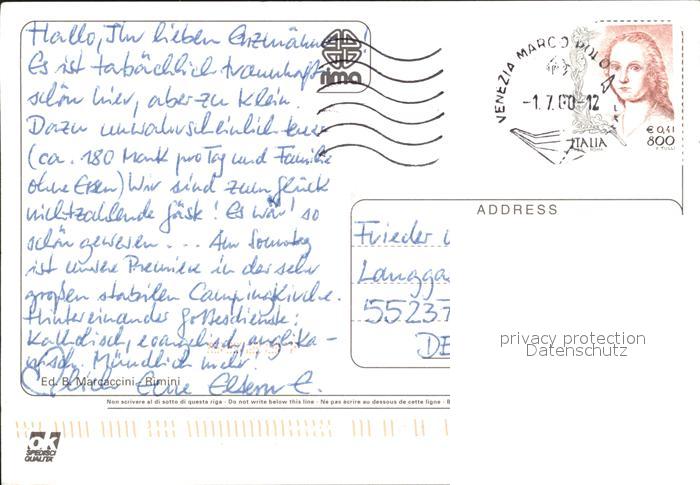 Hallo, Ihr lieben
Es ist tatsächlich traumhaft
schön hier, aber zu klein.
Dazu unwahrscheinlich teuer
(ca. 180 Mark pro Tag und Familie
ohne Essen) Wir sind zum Glück
nichtzahlende Gäste! Es wär' so
schön gewesen ... Am Sonntag
ist unsere Premiere in der sehr
großen stabilen Campingkirche.
Hintereinander Gottesdienste:
katholisch, evangelisch, anglika-
nisch. Mündlich mehr.
Eure Eltern E.
rima
VENEZIA MARCO POLO
-1.7.00-12
€ 0,41
800
ITALIA
ROMA
ADDRESS
Frieder
Langga
55237
DE
privacy protection
Datenschutz
Ed. B. Marcaccini - Rimini
Non scrivere al di sotto di questa riga - Do not write below this line - Ne pas écrire au dessous de cette ligne - B
ok
SPEDISCI
QUALITÀ